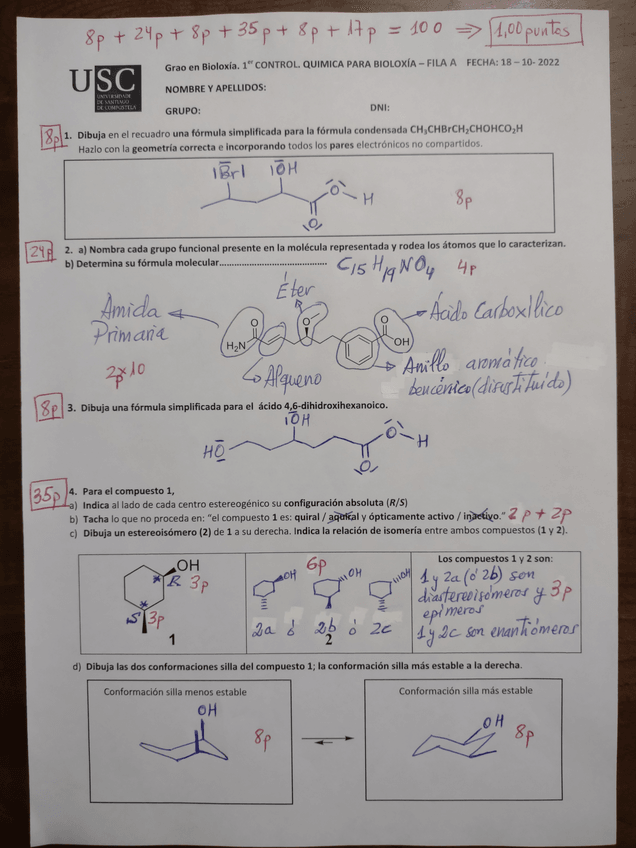 8p + 24p + 8p + 35p + 8p + 17p = 100 ⇒ 1,00 puntos
USC
UNIVERSIDADE
DE SANTIAGO
DE COMPOSTELA
Grao en Bioloxía. 1er CONTROL. QUIMICA PARA BIOLOXÍA – FILA A FECHA: 18 – 10- 2022
NOMBRE Y APELLIDOS:
GRUPO: DNI:
8p 1. Dibuja en el recuadro una fórmula simplificada para la fórmula condensada CH3CHBrCH2CHOHCO2H
Hazlo con la geometría correcta e incorporando todos los pares electrónicos no compartidos.
Br OH
O H
8p
O
24p 2. a) Nombra cada grupo funcional presente en la molécula representada y rodea los átomos que lo caracterizan.
b) Determina su fórmula molecular............................................. C15H19NO4 4p
Éter
Amida
Primaria
Ácido Carboxílico
O O O
H2N OH
2p x 10
Alqueno
Anillo aromático
bencénico (disustituído)
8p 3. Dibuja una fórmula simplificada para el ácido 4,6-dihidroxihexanoico.
OH
HO O H
O
35p 4. Para el compuesto 1,
a) Indica al lado de cada centro estereogénico su configuración absoluta (R/S)
b) Tacha lo que no proceda en: "el compuesto 1 es: quiral / aquiral y ópticamente activo / inactivo." 2p + 2p
c) Dibuja un estereoisómero (2) de 1 a su derecha. Indica la relación de isomería entre ambos compuestos (1 y 2).
OH
R 3p
S 3p
1
6p
OH OH OH
2a ó 2b ó 2c
2
Los compuestos 1 y 2 son:
1 y 2a (ó 2b) son
diastereoisómeros y 3p
epímeros
1 y 2c son enantiómeros
d) Dibuja las dos conformaciones silla del compuesto 1; la conformación silla más estable a la derecha.
Conformación silla menos estable
OH
8p
Conformación silla más estable
OH
8p